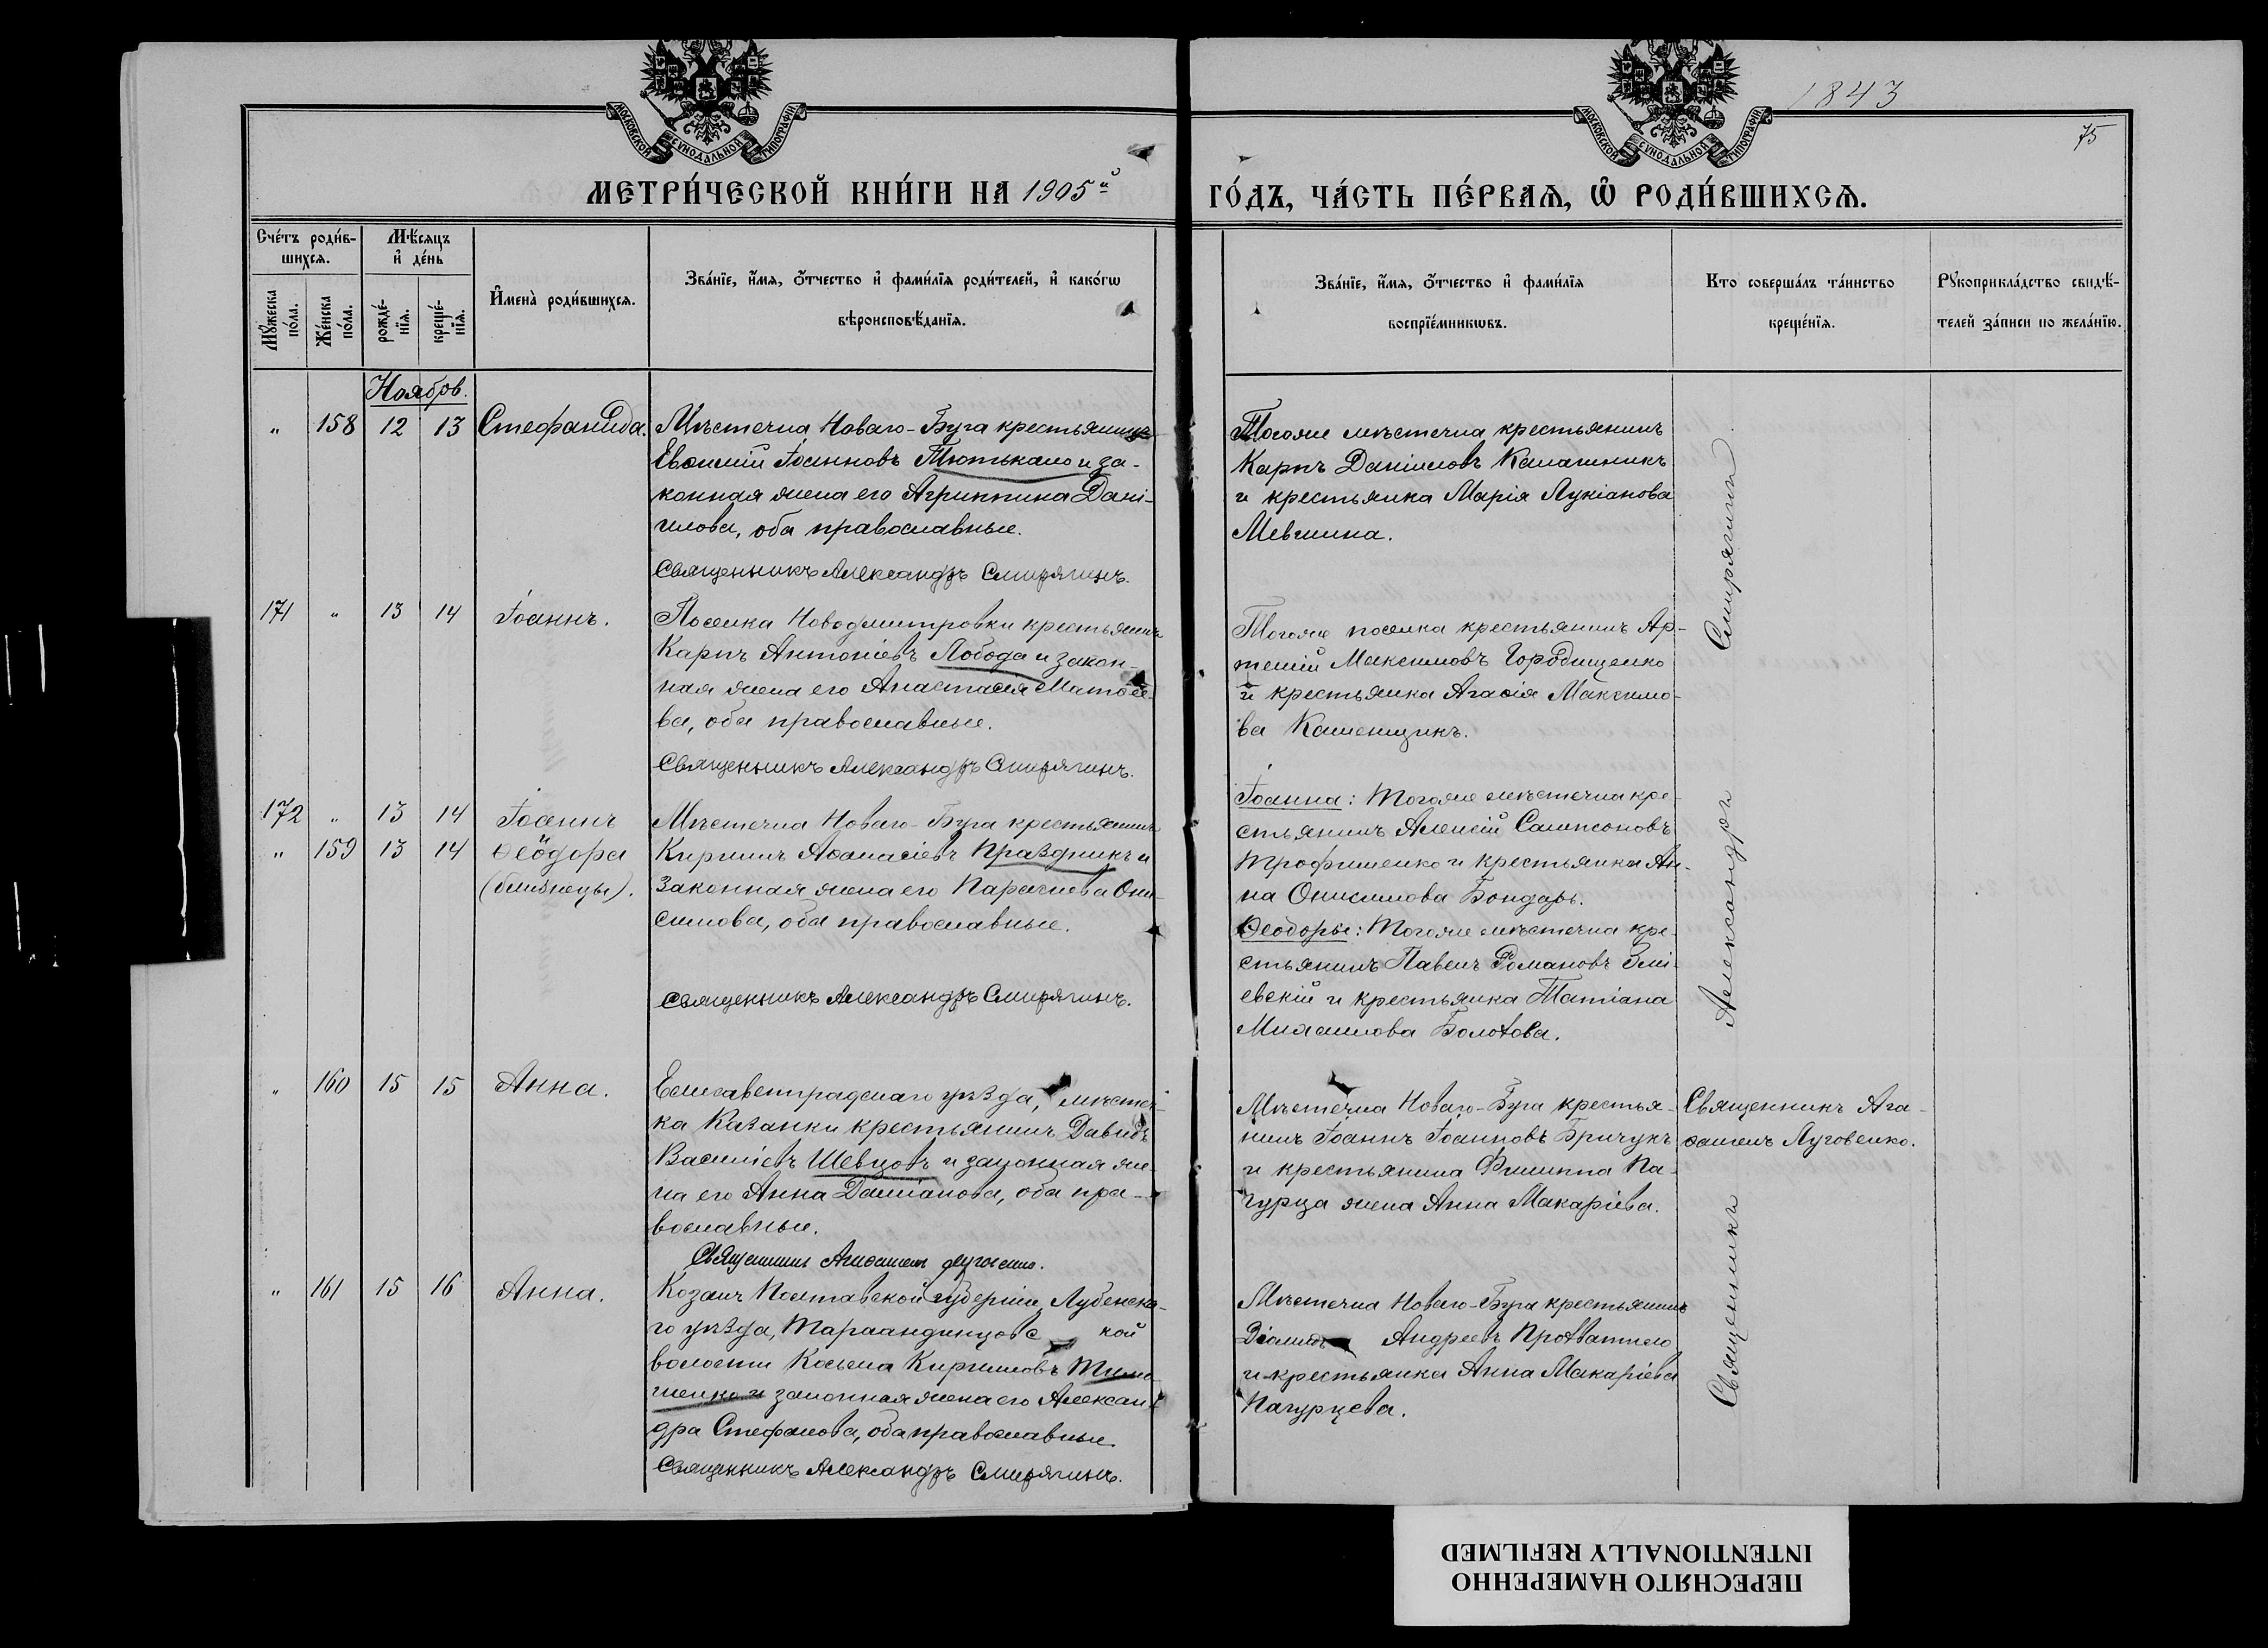 1843
75
МОСКОВСКОЙ СѴНОДАЛЬНОЙ ТИПОГРАФІИ
МОСКОВСКОЙ СѴНОДАЛЬНОЙ ТИПОГРАФІИ
МЕТРИ́ЧЕСКОЙ КНИ́ГИ НА 1905й
ГО́ДЪ, ЧА́СТЬ ПЕ́РВАѦ, Ѿ РОДИ́ВШИХСѦ.
Сче́тъ роди́в-
шихсѧ.
Мꙋжеска
по́ла.
Же́нска
по́ла.
Мѣ́сѧцъ
и҆ де́нь
рожде́-
нїѧ.
креще́-
нїѧ.
И҆мена̀ роди́вшихсѧ.
Зва́нїе, и҆́мѧ, ѻ҆́тчество и҆ фами́лїѧ роди́телей, и҆ како́гѡ
вѣроисповѣ́данїѧ.
Зва́нїе, и҆́мѧ, ѻ҆́тчество и҆ фами́лїѧ
воспрїе́мникѡвъ.
Кто соверша́лъ та́инство
креще́нїѧ.
Рꙋкоприкла́дство свидѣ́-
телей за́писи по жела́нїю.
Ноябрь.
" 158 12 13 Стефанида.
Мѣстечка Новаго-Буга крестьянинъ
Евѳимій Іоанновъ Тютькало и за-
конная жена его Агриппина Дані-
илова, оба православные.
Священникъ Александръ Смирягинъ.
Тогоже мѣстечка крестьянинъ
Карпъ Даніиловъ Калашникъ
и крестьянка Марія Лукіанова
171 " 13 14 Іоаннъ.
Поселка Новодмитровки крестьянинъ
Карпъ Антоніевъ Лобода и закон-
ная жена его Анастасія Матѳее-
ва, оба православные.
Священникъ Александръ Смирягинъ.
Тогоже поселка крестьянинъ Ар-
темій Максимовъ Городищенко
и крестьянка Агаѳія Максимо-
ва Каменщикъ.
172 " 13 14 Іоаннъ
" 159 13 14 Ѳеодора
(близнецы).
Мѣстечка Новаго-Буга крестьянинъ
Кириллъ Аѳанасіевъ Праздникъ и
законная жена его Параскева Они-
симова, оба православные.
Священникъ Александръ Смирягинъ.
Іоанна: Тогоже мѣстечка кре-
стьянинъ Алексій Сампсоновъ
Трофименко и крестьянка Ан-
на Онисимова Бондарь.
Ѳеодоры: Тогоже мѣстечка кре-
стьянинъ Павелъ Романовъ Змі-
евскій и крестьянка Татіана
Михаилова Болотова.
" 160 15 15 Анна.
Елисаветградскаго уѣзда, мѣстеч-
ка Казанки крестьянинъ Давидъ
Василіевъ Шевцовъ и законная же-
на его Анна Даміанова, оба пра-
вославные.
Священникъ Агаѳангелъ Луговенко.
Мѣстечка Новаго-Буга крестья-
нинъ Іоаннъ Іоанновъ Бричукъ
и крестьянина Филиппа Па-
гурца жена Анна Макаріева.
Священникъ Ага-
ѳангелъ Луговенко.
" 161 15 16 Анна.
Козакъ Полтавской губерніи, Лубенска-
го уѣзда, Тарандинцовс кой
волости Косьма Кирилловъ Тимо-
шенко и законная жена его Алексан-
дра Стефанова, оба православные.
Священникъ Александръ Смирягинъ.
Мѣстечка Новаго-Буга крестьянинъ
Діомидъ Андреевъ
и крестьянка Анна Макаріева
Пагурцева.
Священникъ Александръ Смирягинъ
ПЕРЕСНЯТО НАМЕРЕННО
INTENTIONALLY REFILMED